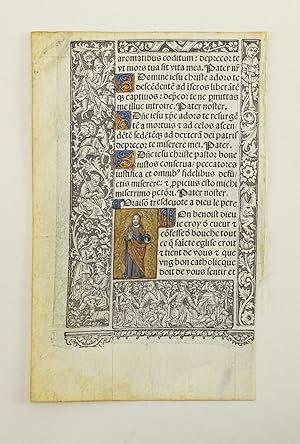 aromatibus conditum: deprecor te
ut mors tua sit vita mea. Pater nr̄
Domine iesu christe adoro te
descēdentē ad īferos liberātē
q̄ captiuos: dep̄cor te ne pmittas
me illuc introire. Pater noster.
Dn̄e iesu xp̄e adoro te resurgē
tē a mortuis et ad celos ascen
dētē sedētēq̄ ad dexterā patris
deprecor te miserere mei. Pater
Dn̄e iesu christe pastor bone
iustos conserua, peccatores
iustifica et omnibꝰ fidelibus defū
ctis miserere: et ppicius esto michi
miserrimo pctōri. Pater noster.
Oraisō tresdeuote a dieu le pere
On benoist dieu
ie croy d cueur et
cōfesse d bouche tout
q̄ saicte eglise croit
et tient de vous et que
vng bon catholicque
doit de vous sentir et